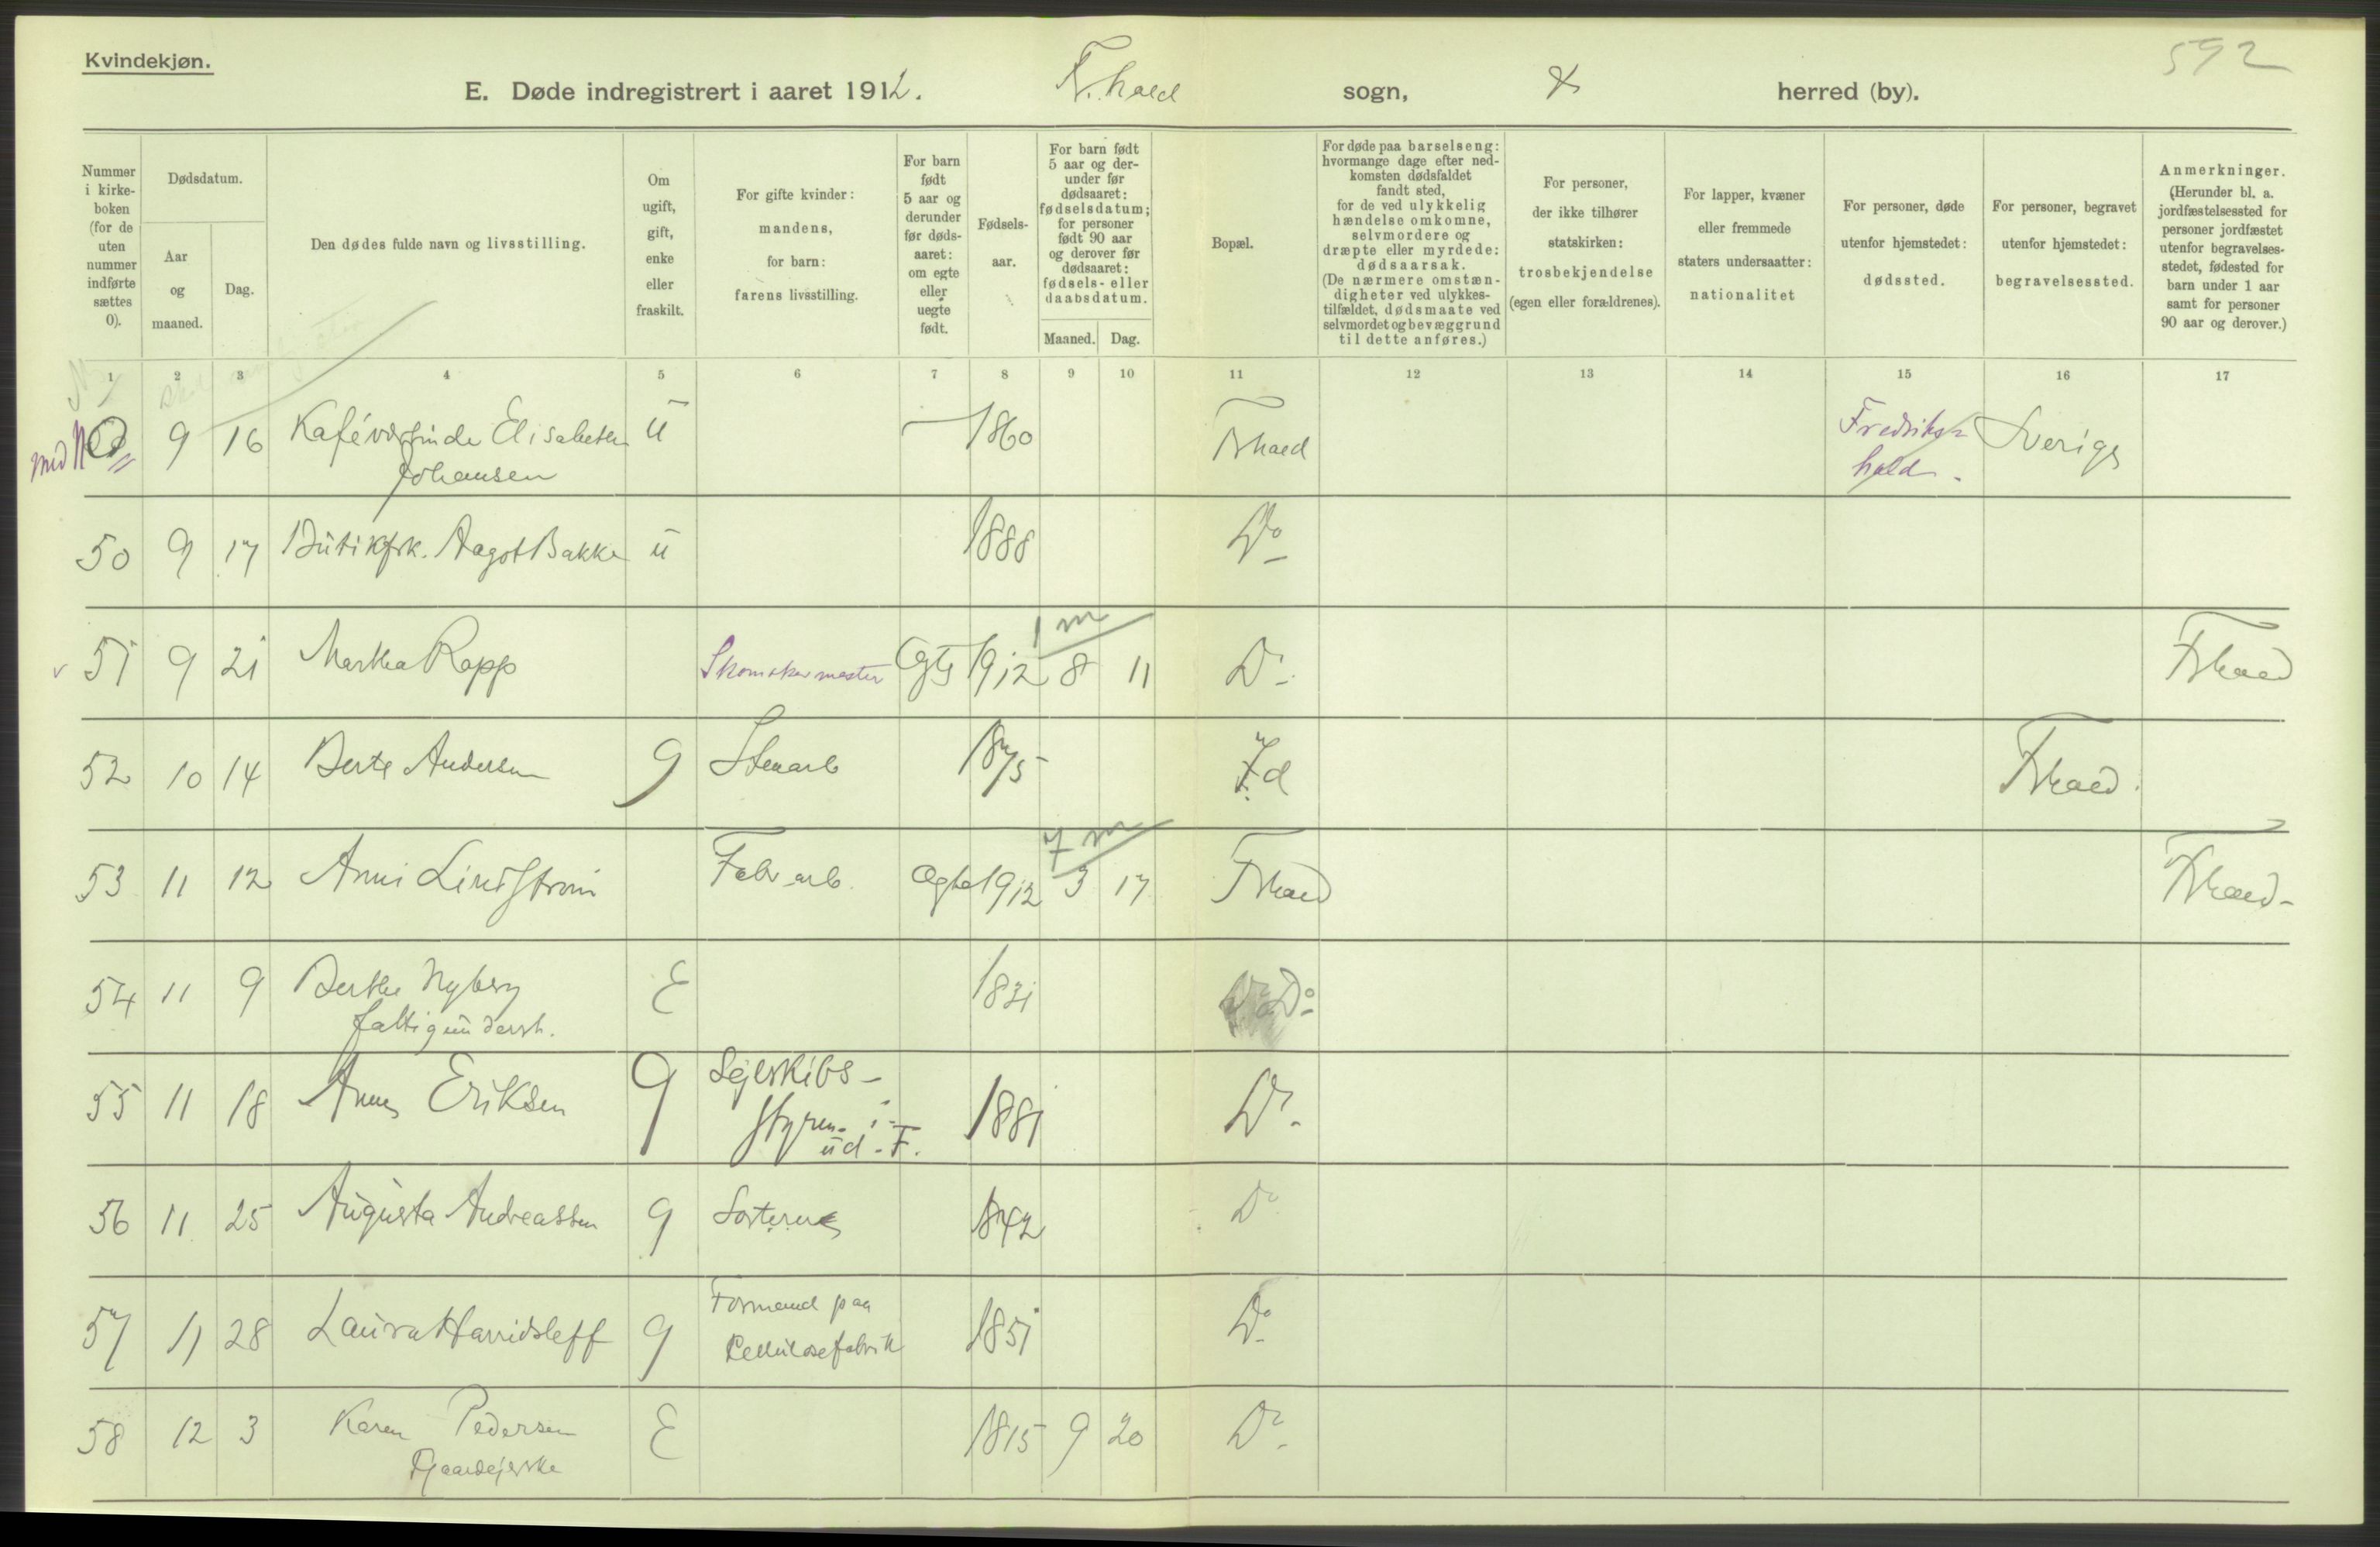 Kvindekjøn.
592
E. Døde indregistrert i aaret 1912. F.hald sogn, herred (by).
Nummer i kirke-boken (for de uten nummer indførte sættes 0).
Dødsdatum.
Aar og maaned.
Dag.
Den dødes fulde navn og livsstilling.
Om ugift, gift, enke eller fraskilt.
For gifte kvinder: mandens, for barn: farens livsstilling.
For barn født 5 aar og derunder før døds-aaret: om egte eller uegte født.
Fødsels-aar.
For barn født 5 aar og der-under før dødsaaret: fødselsdatum; for personer født 90 aar og derover før dødsaaret: fødsels- eller daabsdatum.
Maaned. Dag.
Bopæl.
For døde paa barselseng: hvormange dage efter ned-komsten dødsfaldet fandt sted, for de ved ulykkelig hændelse omkomne, selvmordere og dræpte eller myrdede: dødsaarsak. (De nærmere omstæn-digheter ved ulykkes-tilfældet, dødsmaate ved selvmordet og bevæggrund til dette anføres.)
For personer, der ikke tilhører statskirken: trosbekjendelse (egen eller forældrenes).
For lapper, kvæner eller fremmede staters undersaatter: nationalitet
For personer, døde utenfor hjemstedet: dødssted.
For personer, begravet utenfor hjemstedet: begravelsessted.
Anmerkninger. (Herunder bl. a. jordfæstelsessted for personer jordfæstet utenfor begravelses-stedet, fødested for barn under 1 aar samt for personer 90 aar og derover.)
1 2 3 4 5 6 7 8 9 10 11 12 13 14 15 16 17
med 9 16 Kafévertinde Elisabeth ü 1860 Fhald Fredriks- Sverige
Johansen hald.
50 9 17 Butikfrk. Aagot Bakke ü 1888 Do
1 m
51 9 21 Martha Rapp Skomakermester Egte 1912 8 11 Do Fhald
52 10 14 Berte Andersen G Stenarb 1875 Id Fhald.
7 m
53 11 12 Anni Lindstrøm Fabr.arb. Egte 1912 3 17 Fhald Fhald-
54 11 9 Berthe Nyberg E 1831 Do
fattigunderst.
55 11 18 Anna Eriksen G Sejlskibs- 1881 Do
styrm. i
ud. F.
56 11 25 Augusta Andreassen G 1842 Do
57 11 28 Laura G Formand paa 1851 Do
Cellulosefabrik
58 12 3 Karen Pedersen E 1815 9 20 Do
Gaardejerske